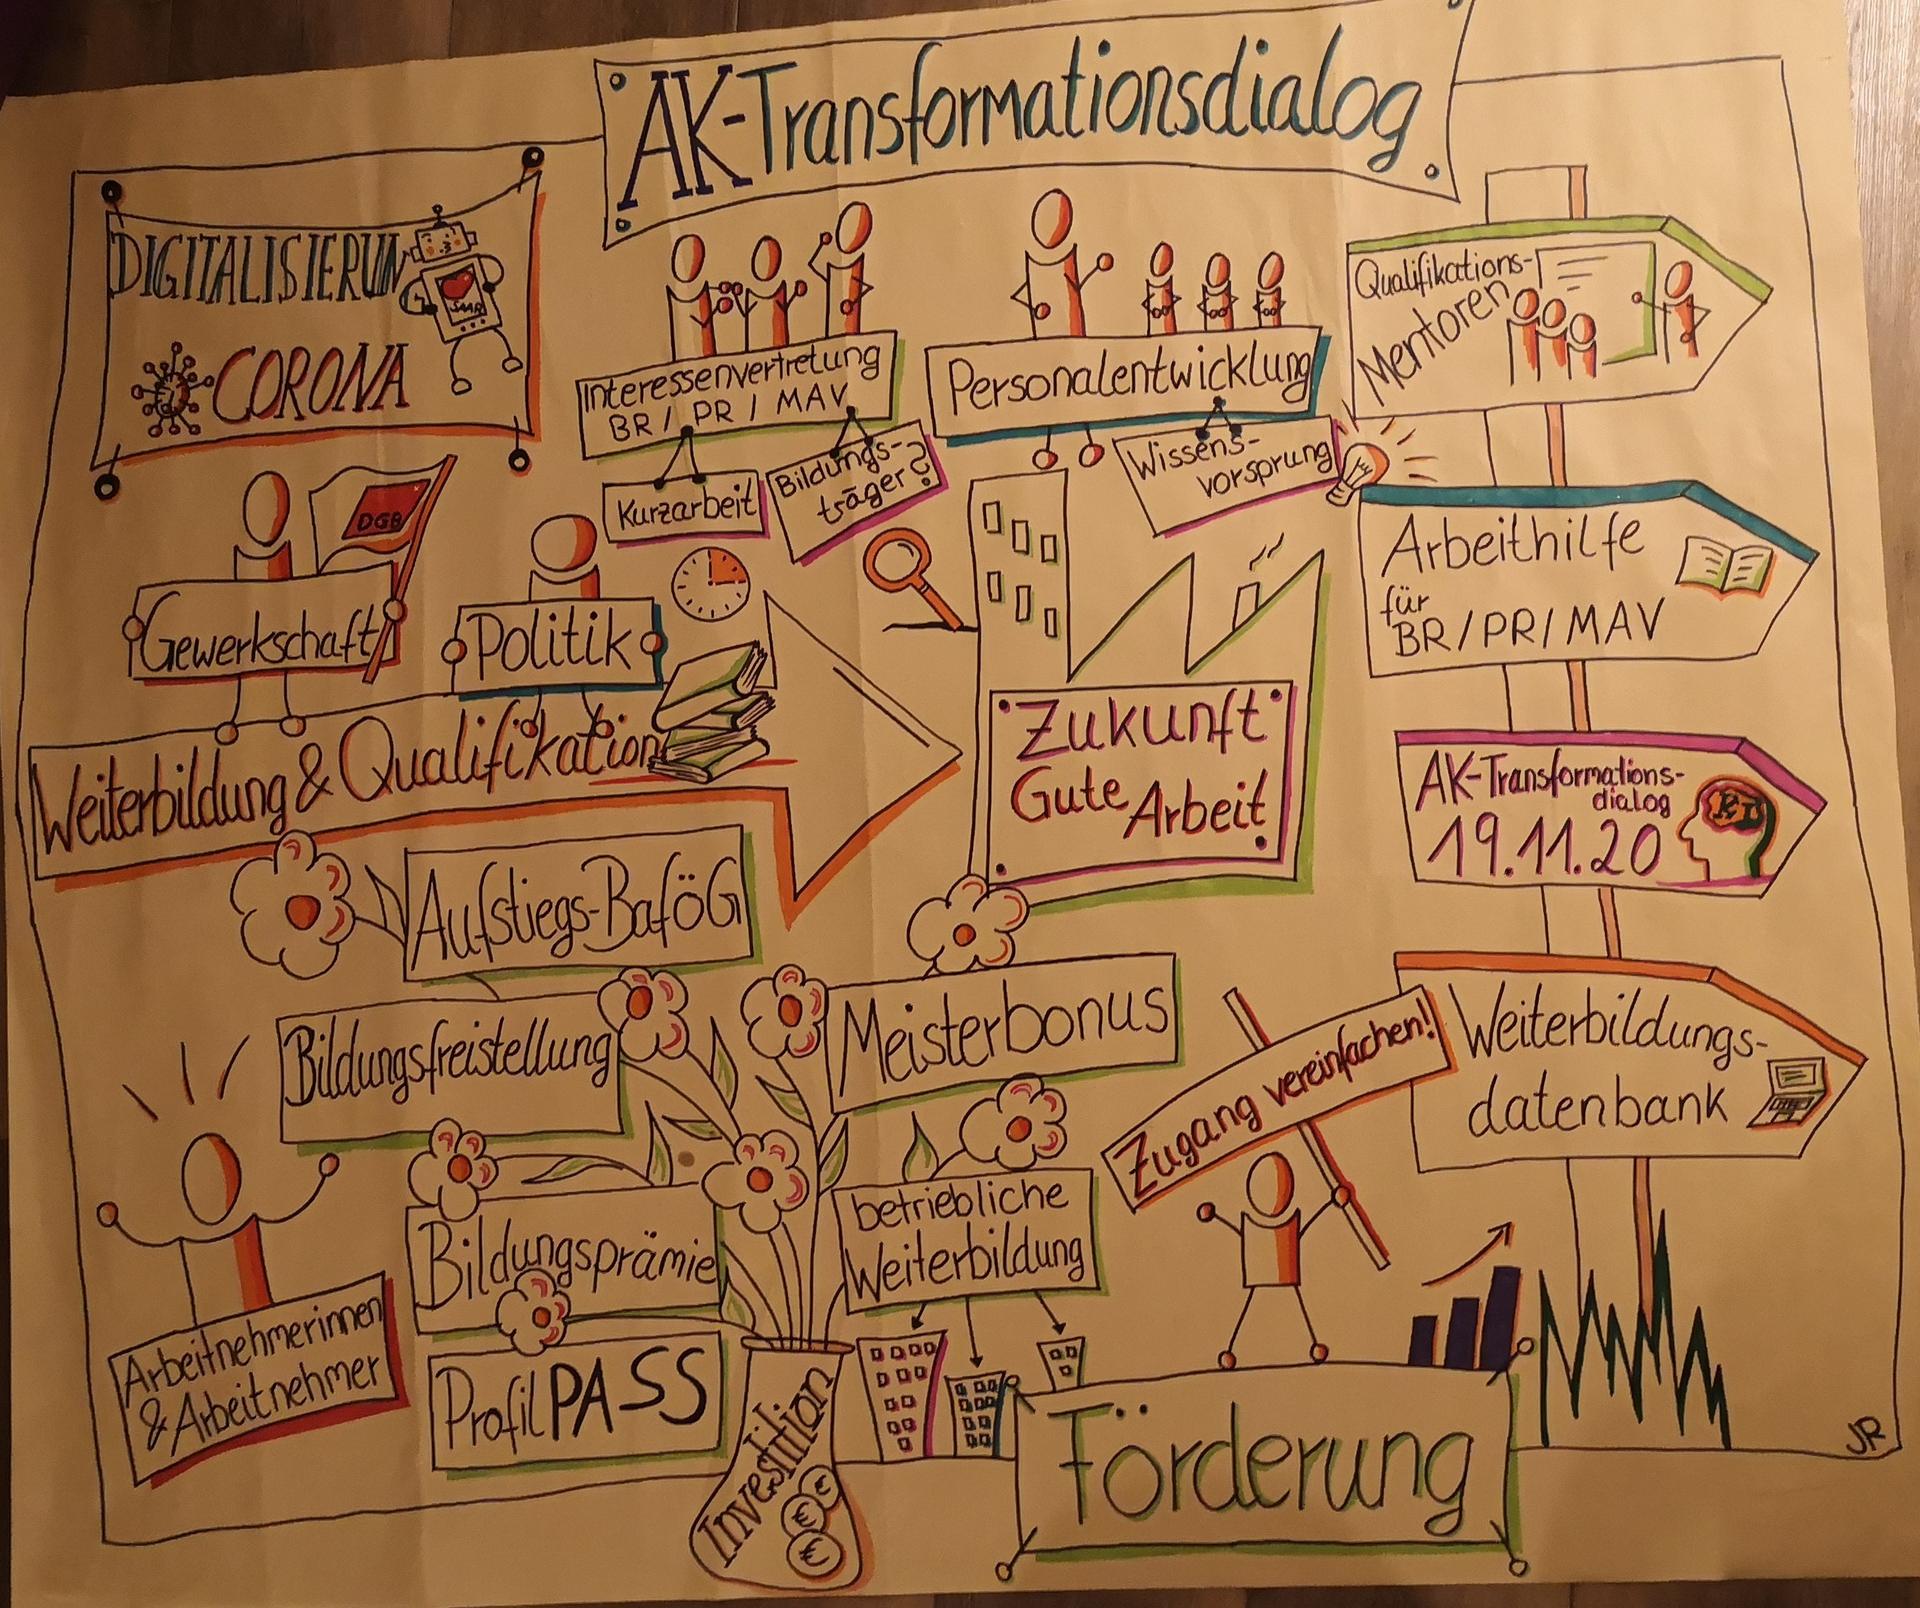 AK-Transformationsdialog
DIGITALISIERUN
CORONA
Interessenvertretung
BR / PR / MAV
Kurzarbeit
Bildungs-
träger?
Personalentwicklung
Wissens-
vorsprung
Qualifikations-
Mentoren
Arbeithilfe
für
BR / PR / MAV
AK-Transformations-
dialog
19.11.20
KI
Weiterbildungs-
datenbank
DGB
Gewerkschaft
Politik
Weiterbildung & Qualifikation
Zukunft
Gute Arbeit
Aufstiegs-BaföG
Bildungsfreistellung
Meisterbonus
Bildungsprämie
betriebliche
Weiterbildung
ProfilPASS
Arbeitnehmerinnen
& Arbeitnehmer
Investition
€
€
€
Zugang vereinfachen!
Förderung
JR